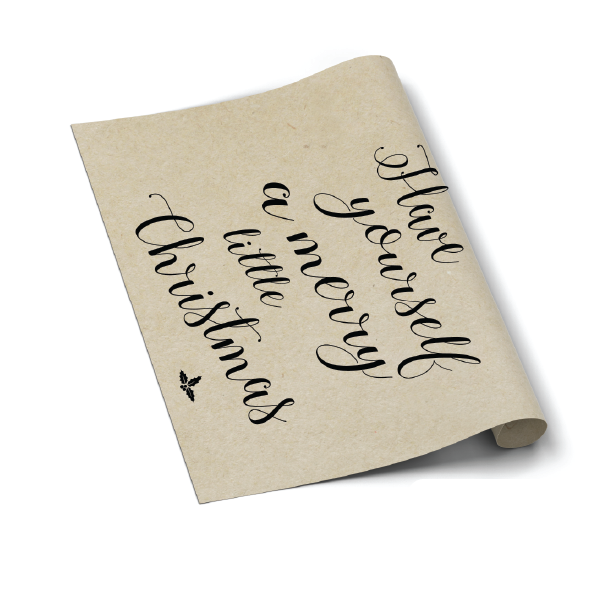 Have
yourself
a merry
little
Christmas